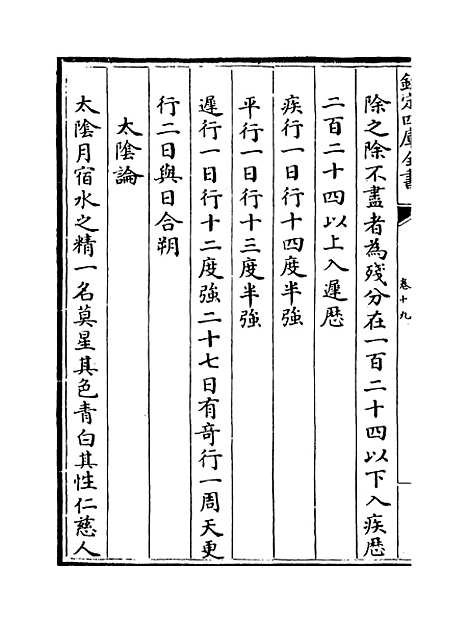 欽定四庫全書
卷十九
除之除不盡者為殘分在一百二十四以下入疾歴
二百二十四以上入遲歴
疾行一日行十四度半強
平行一日行十三度半強
遲行一日行十二度強二十七日有奇行一周天更
行二日與日合朔
太陰論
太陰月宿水之精一名莫星其色青白其性仁慈人